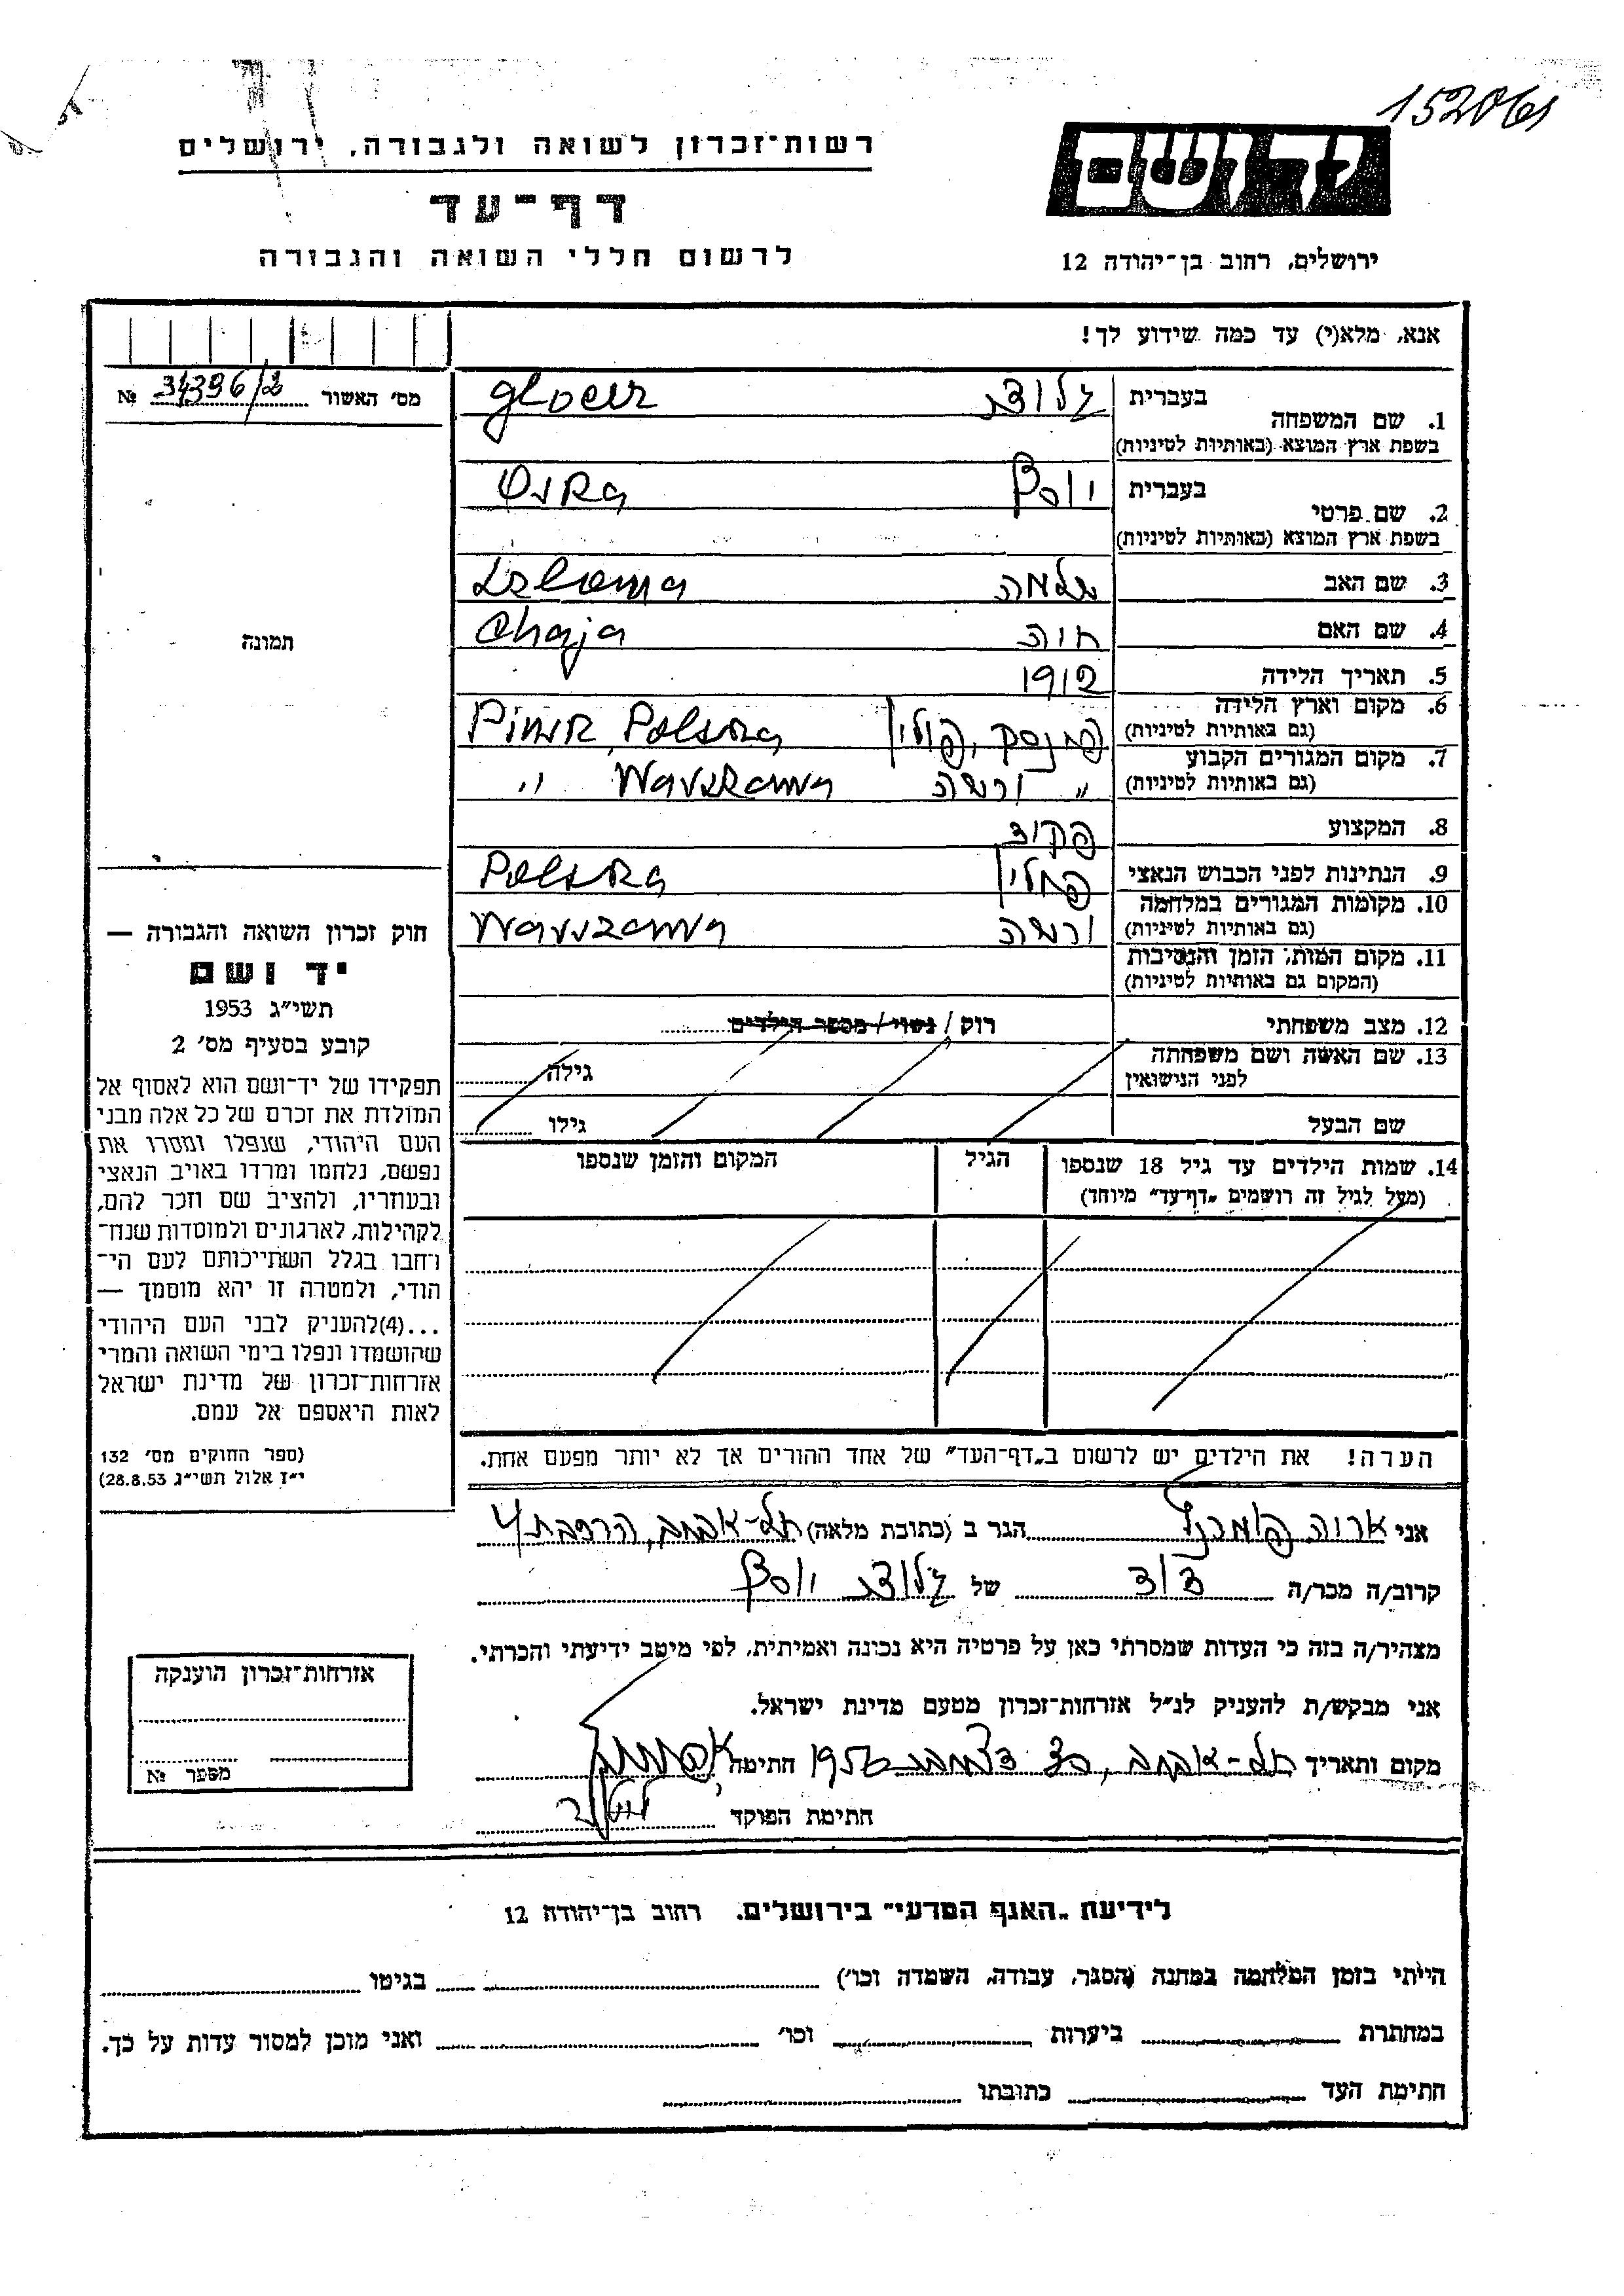 152061
רשות־זכרון לשואה ולגבורה, ירושלים
יד ושם
דף־עד
לרשום חללי השואה והגבורה
ירושלים, רחוב בן־יהודה 12
אנא, מלא(י) עד כמה שידוע לך!
מס' האשור № 34396/2
1. שם המשפחה
בעברית
בשפת ארץ המוצא (באותיות לטיניות)
2. שם פרטי
בעברית יוסף
בשפת ארץ המוצא (באותיות לטיניות)
3. שם האב שלמה
4. שם האם חיה Chaja
5. תאריך הלידה 1912
6. מקום וארץ הלידה פינסק, פולין Pinsk, Polska
(גם באותיות לטיניות)
7. מקום המגורים הקבוע ורשה " Warszawa "
(גם באותיות לטיניות)
8. המקצוע פקיד
9. הנתינות לפני הכבוש הנאצי פולין Polska
10. מקומות המגורים במלחמה ורשה Warszawa
(גם באותיות לטיניות)
11. מקום המות, הזמן והנסיבות
(המקום גם באותיות לטיניות)
12. מצב משפחתי רוק / נשוי / מספר הילדים
13. שם האשה ושם משפחתה גילה
לפני הנישואין
שם הבעל גילו
14. שמות הילדים עד גיל 18 שנספו הגיל המקום והזמן שנספו
(מעל לגיל זה רושמים "דף־עד" מיוחד)
הערה! את הילדים יש לרשום ב"דף־העד" של אחד ההורים אך לא יותר מפעם אחת.
תמונה
חוק זכרון השואה והגבורה —
יד ושם
תשי"ג 1953
קובע בסעיף מס' 2
תפקידו של יד־ושם הוא לאסוף אל
המולדת את זכרם של כל אלה מבני
העם היהודי, שנפלו ומסרו את
נפשם, נלחמו ומרדו באויב הנאצי
ובעוזריו, ולהציב שם וזכר להם,
לקהילות, לארגונים ולמוסדות שנח־
רחבו בגלל השתייכותם לעם הי־
הודי, ולמטרה זו יהא מוסמך —
...(4)להעניק לבני העם היהודי
שהושמדו ונפלו בימי השואה והמרי
אזרחות־זכרון של מדינת ישראל
לאות היאספם אל עמם.
(ספר החוקים מס' 132
י"ז אלול תשי"ג 28.8.53)
אני הגר ב (כתובת מלאה) תל-אביב,
קרוב/ה מכר/ה דוד של יוסף
מצהיר/ה בזה כי העדות שמסרתי כאן על פרטיה היא נכונה ואמיתית, לפי מיטב ידיעתי והכרתי.
אני מבקש/ת להעניק לנ"ל אזרחות־זכרון מטעם מדינת ישראל.
מקום ותאריך תל-אביב, דצמבר 1956 חתימה
חתימת הפוקד
אזרחות־זכרון הוענקה
מספר №
לידיעת "האגף המדעי" בירושלים. רחוב בן־יהודה 12
הייתי בזמן המלחמה במחנה (הסגר, עבודה, השמדה וכו') בגיטו
במחתרת ביערות וכו' ואני מוכן למסור עדות על כך.
חתימת העד כתובתו